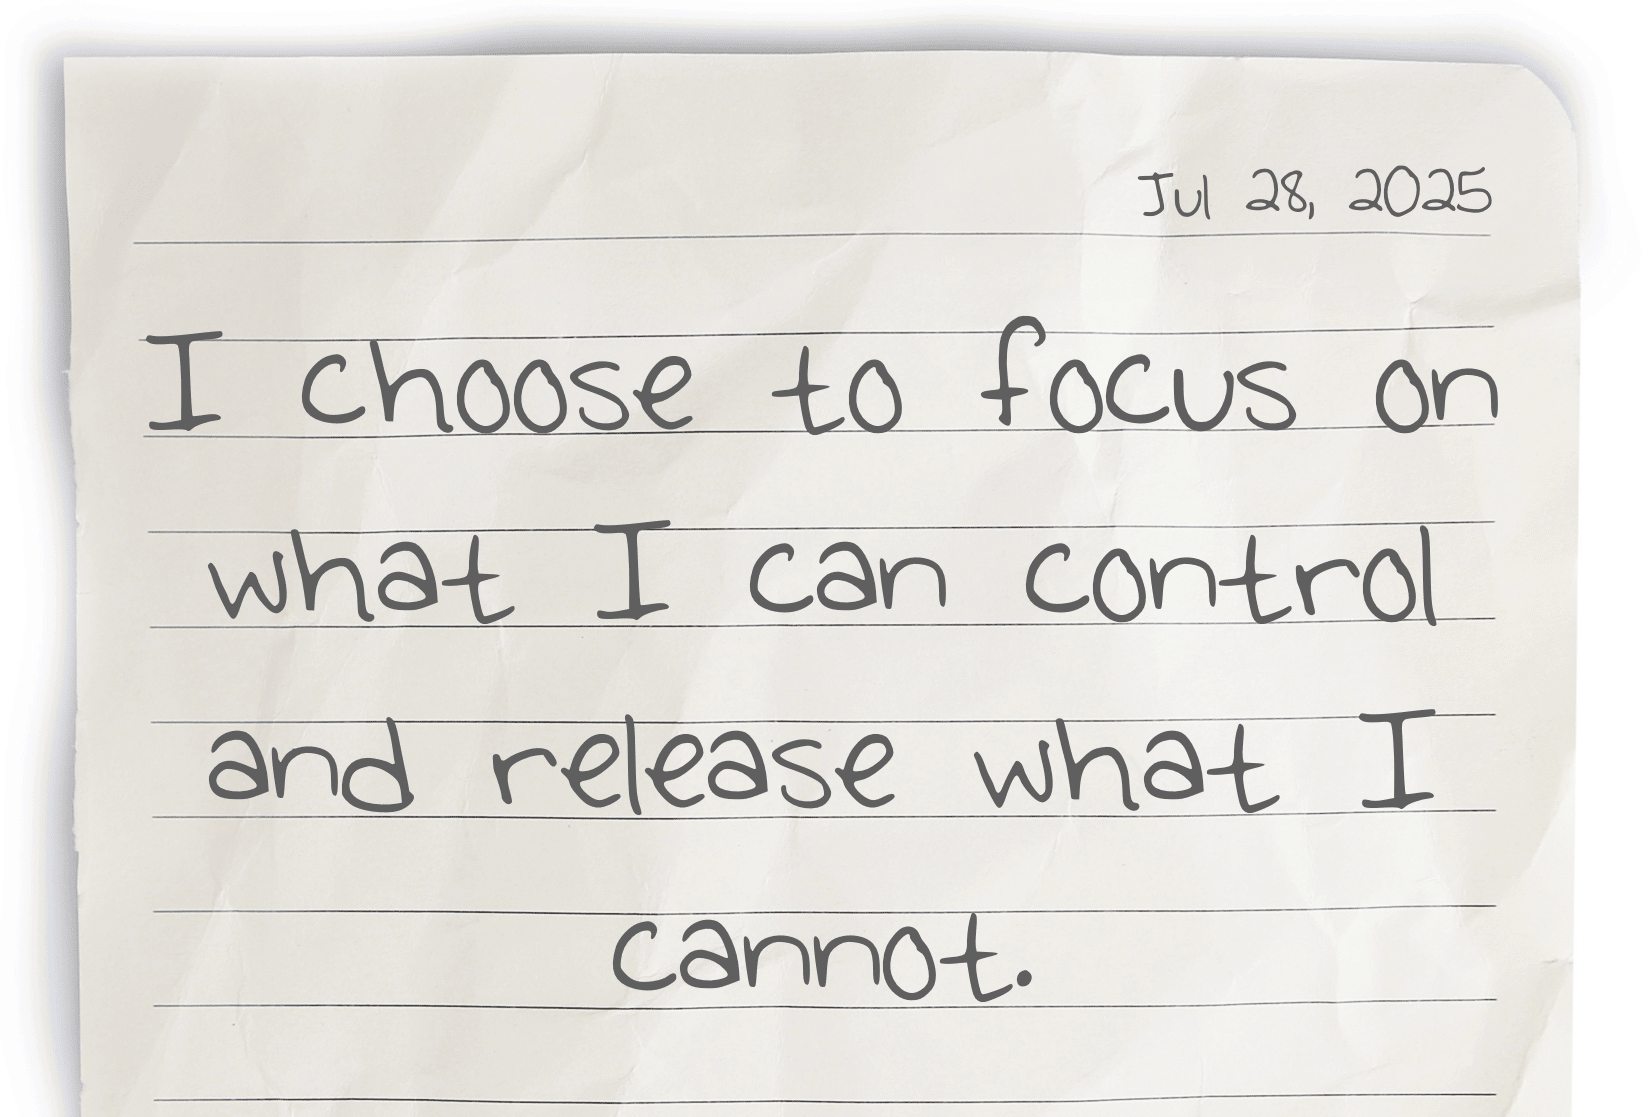 Jul 28, 2025
I choose to focus on
what I can control
and release what I
cannot.